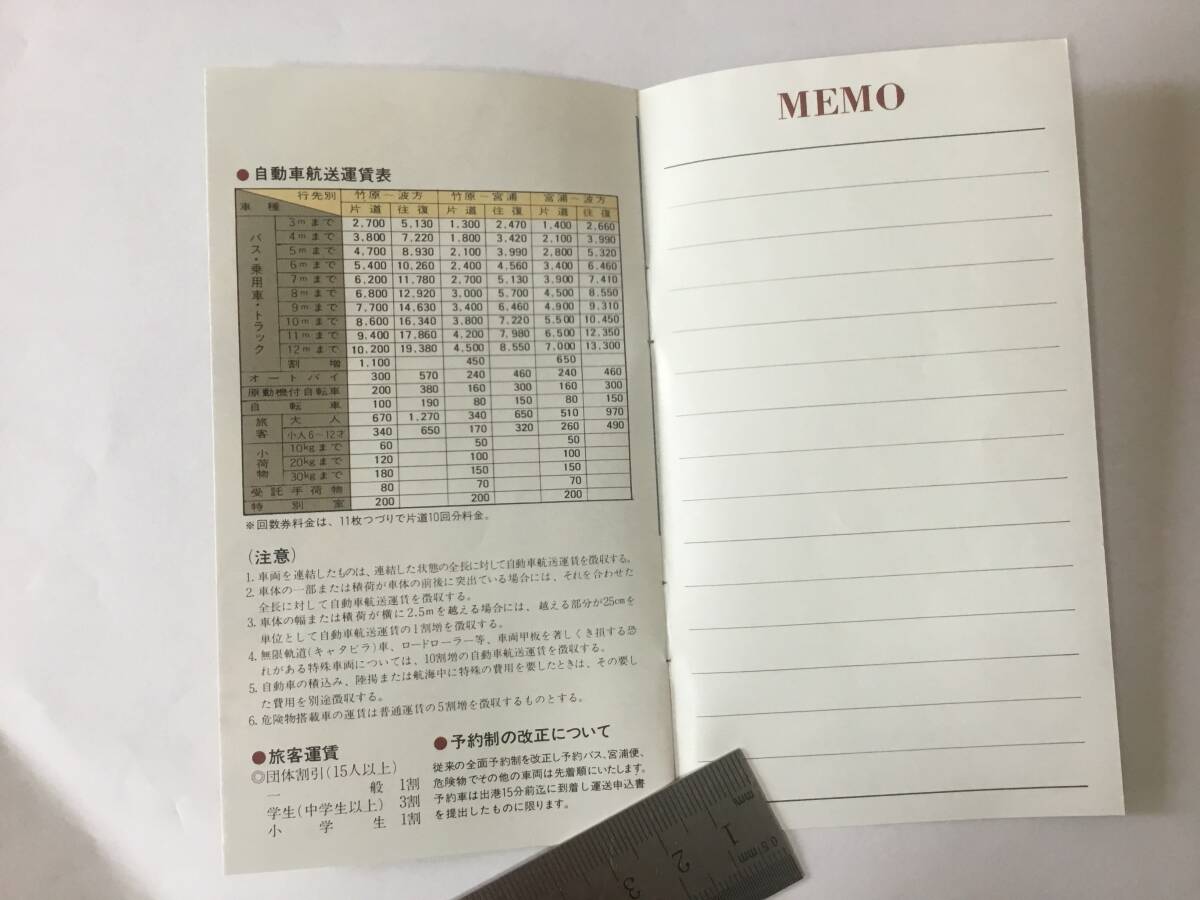 ●自動車航送運賃表
行先別 竹原〜波方 竹原〜宮浦 宮浦〜波方
車種 片道 往復 片道 往復 片道 往復
バス・乗用車・トラック
3mまで 2,700 5,130 1,300 2,470 1,400 2,660
4mまで 3,800 7,220 1,800 3,420 2,100 3,990
5mまで 4,700 8,930 2,100 3,990 2,800 5,320
6mまで 5,400 10,260 2,400 4,560 3,400 6,460
7mまで 6,200 11,780 2,700 5,130 3,900 7,410
8mまで 6,800 12,920 3,000 5,700 4,500 8,550
9mまで 7,700 14,630 3,400 6,460 4,900 9,310
10mまで 8,600 16,340 3,800 7,220 5,500 10,450
11mまで 9,400 17,860 4,200 7,980 6,500 12,350
12mまで 10,200 19,380 4,500 8,550 7,000 13,300
割増 1,100 450 650
オートバイ 300 570 240 460 240 460
原動機付自転車 200 380 160 300 160 300
自転車 100 190 80 150 80 150
旅客 大人 670 1,270 340 650 510 970
小人6〜12才 340 650 170 320 260 490
小荷物 10kgまで 60 50 50
20kgまで 120 100 100
30kgまで 180 150 150
受託手荷物 80 70 70
特別室 200 200 200
※回数券料金は、11枚つづりで片道10回分料金。
(注意)
1. 車両を連結したものは、連結した状態の全長に対して自動車航送運賃を徴収する。
2. 車体の一部または積荷が車体の前後に突出ている場合には、それを合わせた
全長に対して自動車航送運賃を徴収する。
3. 車体の幅または積荷が横に2.5mを越える場合には、越える部分が25cmを
単位として自動車航送運賃の1割増を徴収する。
4. 無限軌道(キャタピラ)車、ロードローラー等、車両甲板を著しくき損する恐
れがある特殊車両については、10割増の自動車航送運賃を徴収する。
5. 自動車の積込み、陸揚または航海中に特殊の費用を要したときは、その要し
た費用を別途徴収する。
6. 危険物搭載車の運賃は普通運賃の5割増を徴収するものとする。
●旅客運賃
◎団体割引(15人以上)
一般 1割
学生(中学生以上) 3割
小学生 1割
●予約制の改正について
従来の全面予約制を改正し予約バス、宮浦便、
危険物でその他の車両は先着順にいたします。
予約車は出港15分前迄に到着し運送申込書
を提出したものに限ります。
MEMO
1
2
3
mm
0.5mm